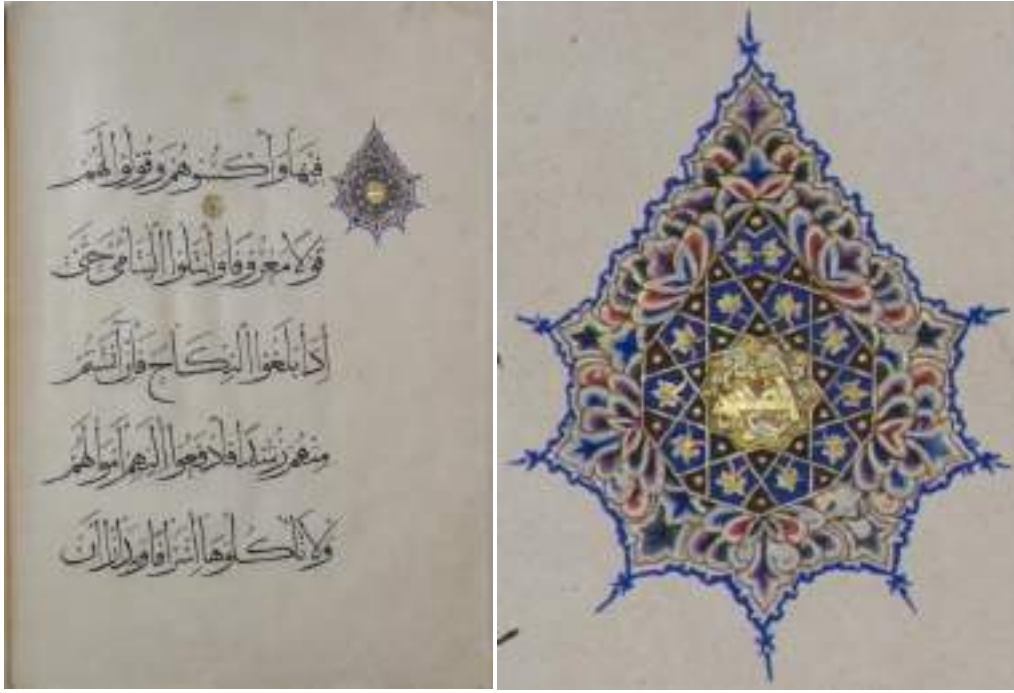 فِيهَا وَاكْسُوهُمْ وَقُولُوا لَهُمْ
قَوْلًا مَعْرُوفًا وَابْتَلُوا الْيَتَامَىٰ حَتَّىٰ
إِذَا بَلَغُوا النِّكَاحَ فَإِنْ آنَسْتُمْ
مِنْهُمْ رُشْدًا فَادْفَعُوا إِلَيْهِمْ أَمْوَالَهُمْ
وَلَا تَأْكُلُوهَا إِسْرَافًا وَبِدَارًا أَنْ